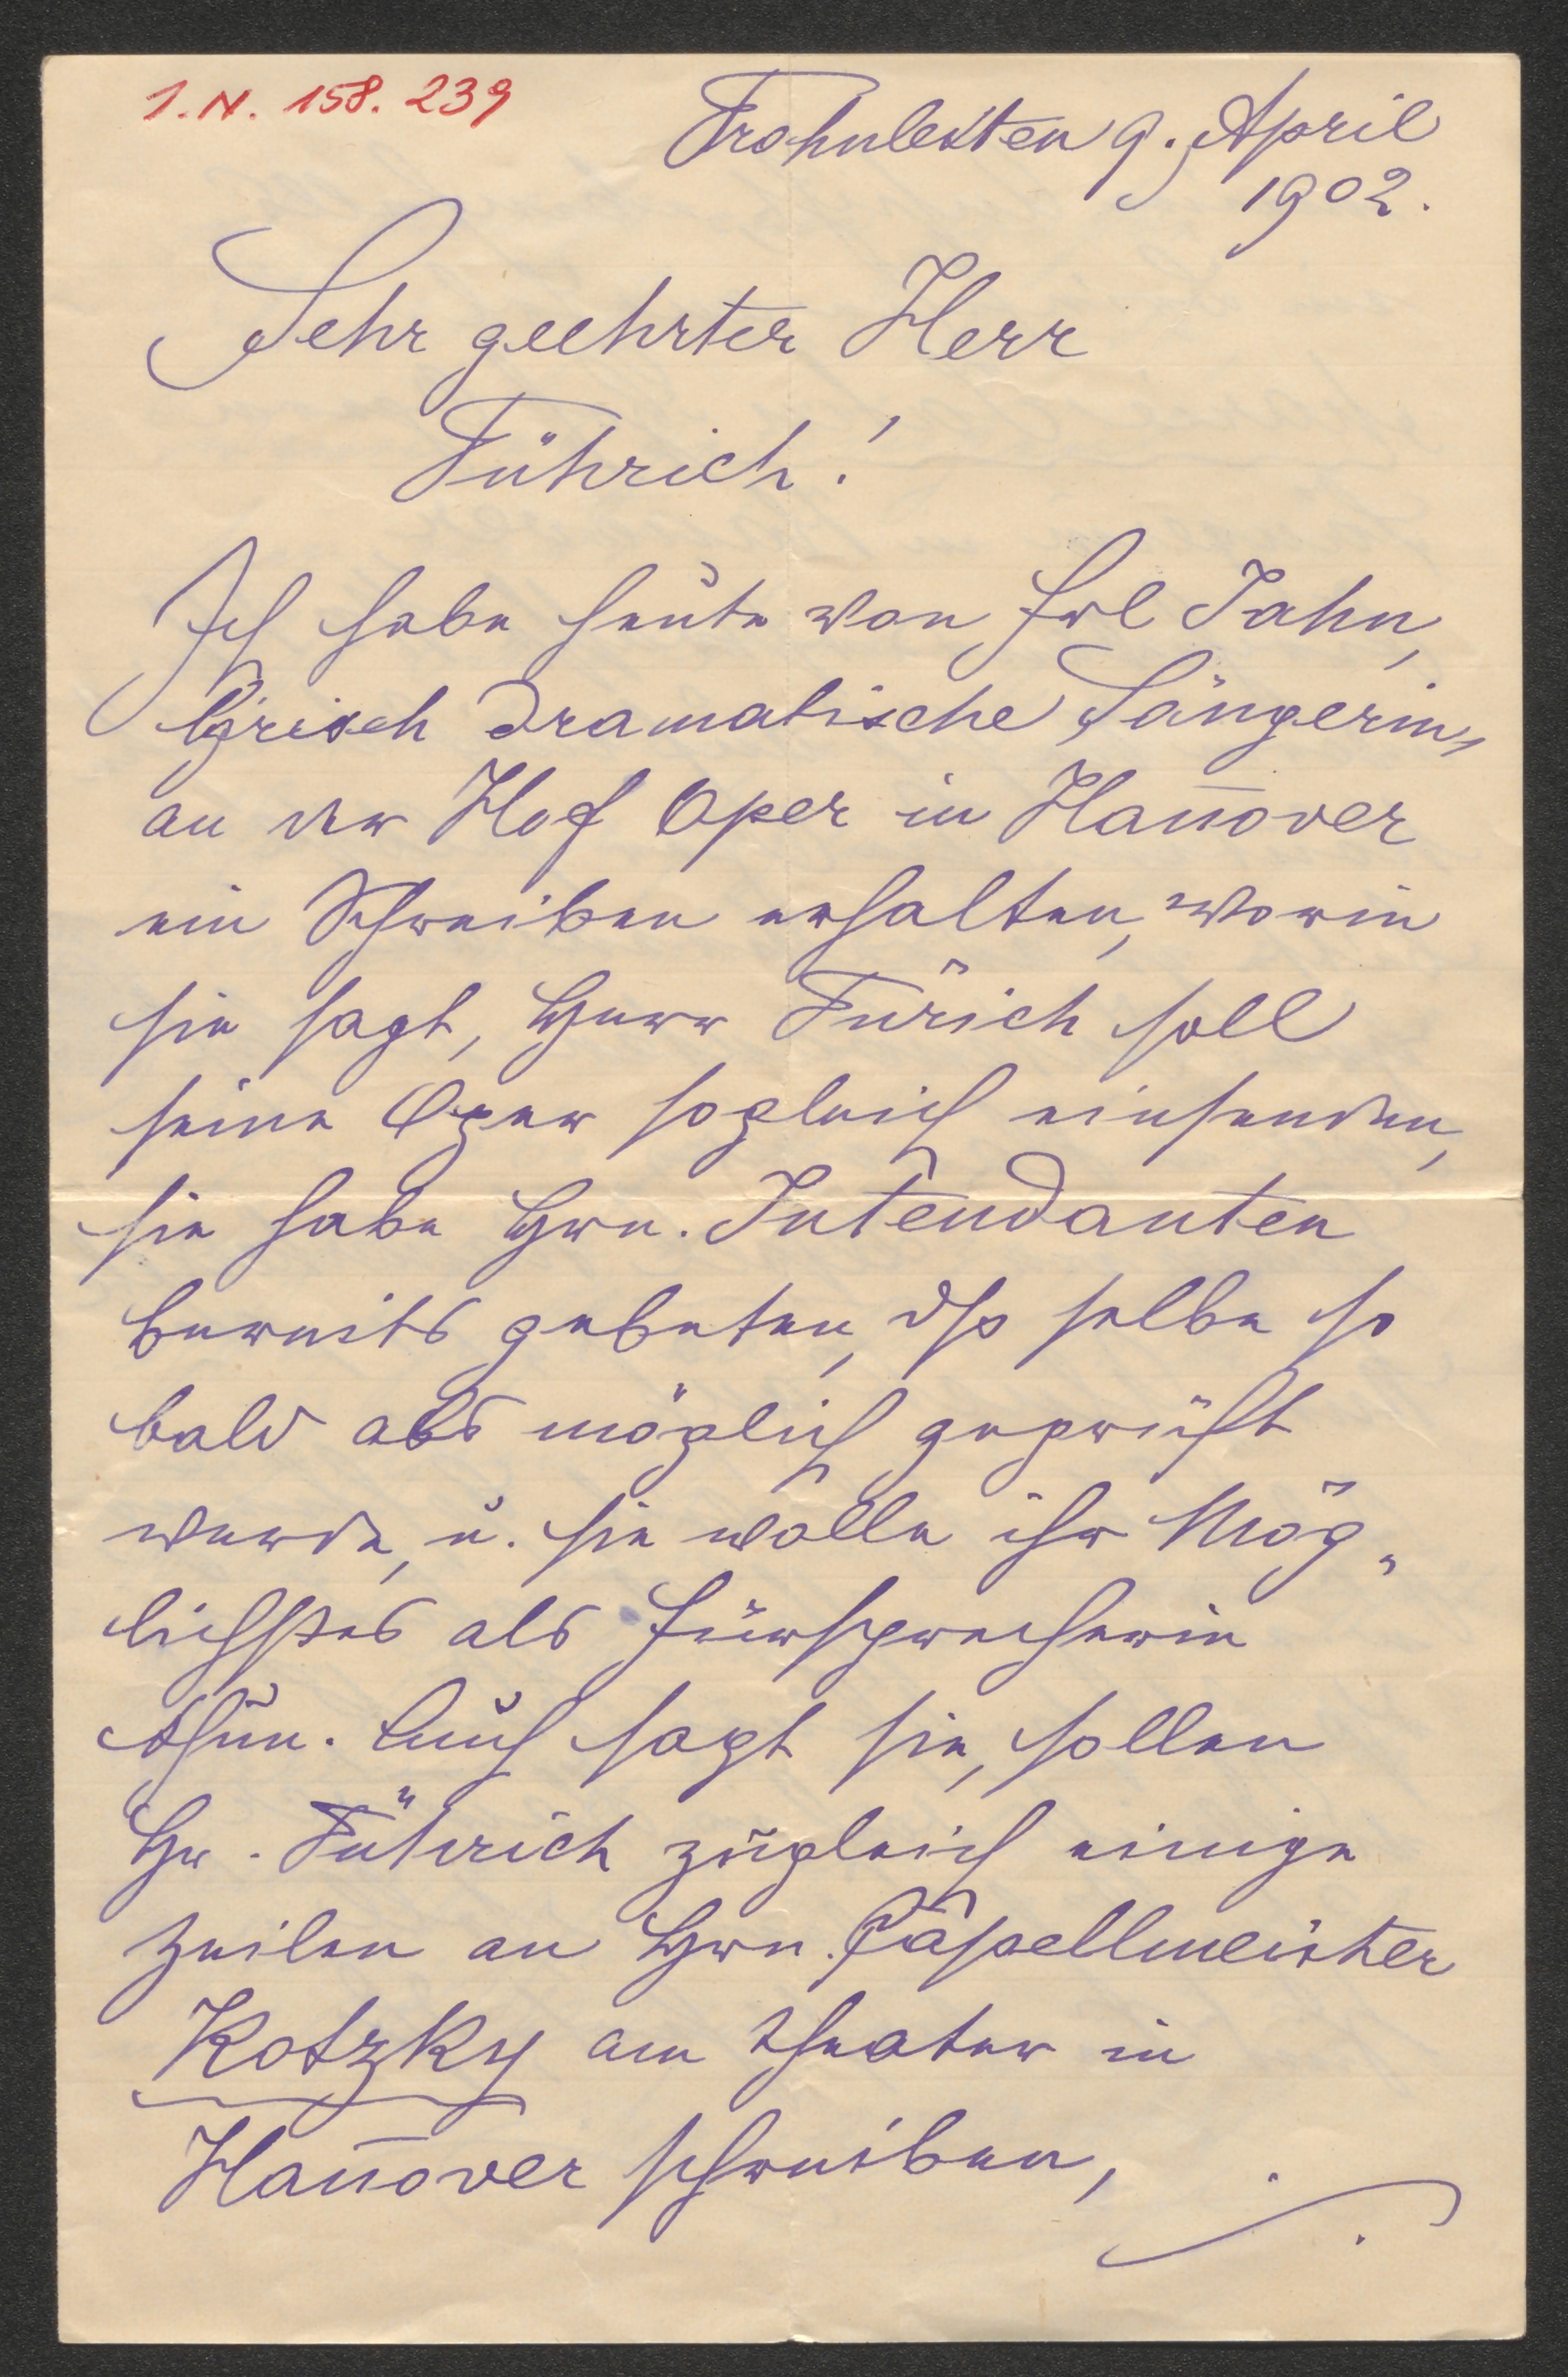 I.N. 158.239
Frohnleiten 9. April
1902.
Sehr geehrter Herr
Führich!
Ich habe heute von Frl Jahn,
lyrisch dramatische Sängerin,
an der Hof Oper in Han̄over
ein Schreiben erhalten, worin
sie sagt, Herr Fürich soll
seine Oper sogleich einsenden,
sie habe Hrn. Intendanten
bereits gebeten, dß selbe so
bald als möglich geprüft
werde, u. sie wolle ihr Mög„
lichstes als Fürsprecherin
thun. Auch sagt sie, sollen
Hr. Führich zugleich einige
Zeilen an Hrn. Capellmeister
Kotzky am Theater in
Han̄over schreiben,